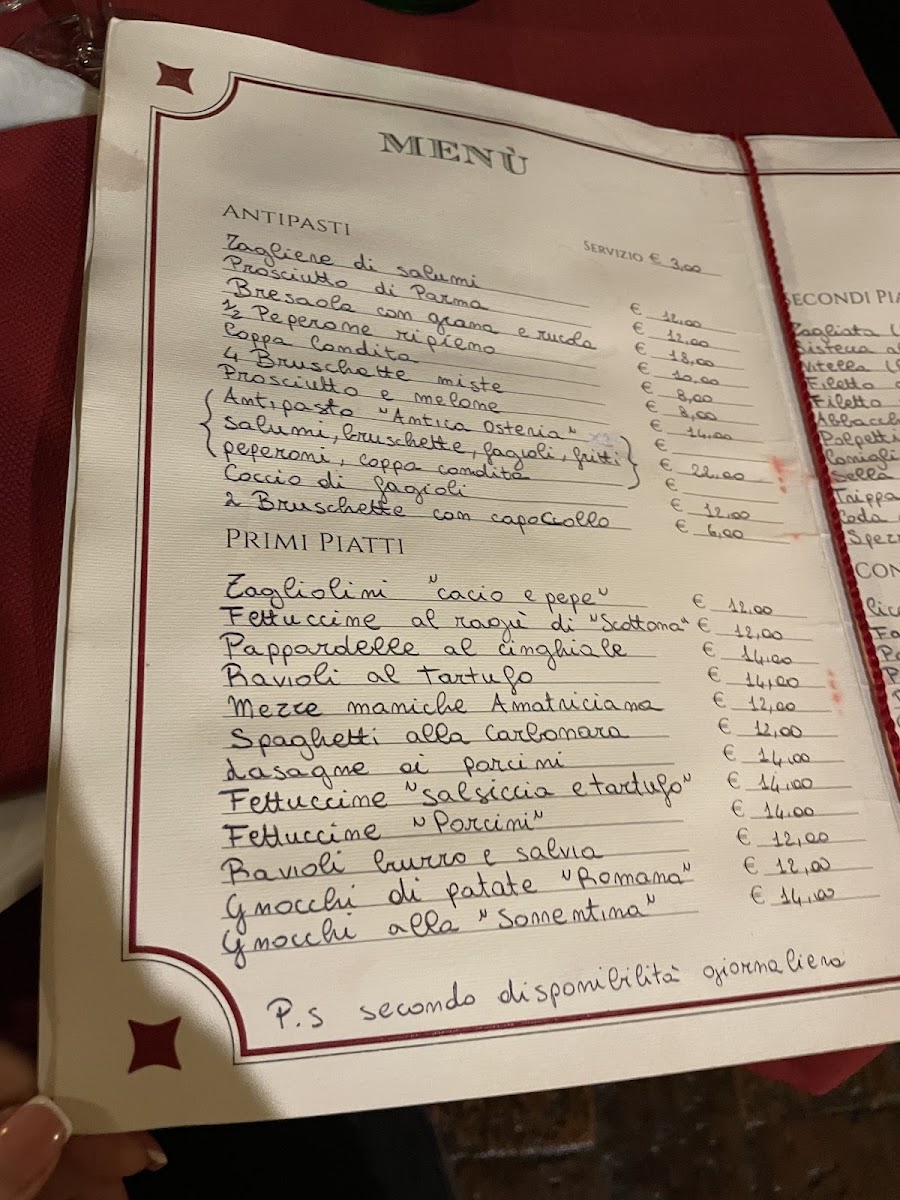 MENÙ
ANTIPASTI
SERVIZIO € 3,00
Tagliere di salumi € 12,00
Prosciutto di Parma € 12,00
Bresaola con grana e rucola € 18,00
1/2 Peperone ripieno € 10,00
Coppa condita € 8,00
4 Bruschette miste € 8,00
Prosciutto e melone € 14,00
Antipasto "Antica Osteria" €
salumi, bruschette, fagioli, fritti € 22,00
peperoni, coppa condita €
Coccio di fagioli € 12,00
2 Bruschette con capocollo € 6,00
PRIMI PIATTI
Tagliolini "cacio e pepe" € 12,00
Fettuccine al ragù di "Scottona" € 12,00
Pappardelle al cinghiale € 14,00
Ravioli al Tartufo € 14,00
Mezze maniche Amatriciana € 12,00
Spaghetti alla Carbonara € 12,00
Lasagne ai porcini € 14,00
Fettuccine "salsiccia e tartufo" € 14,00
Fettuccine "Porcini" € 14,00
Ravioli burro e salvia € 12,00
Gnocchi di patate "Romana" € 12,00
Gnocchi alla "Sorrentina" € 14,00
P.s secondo disponibilità giornaliera
SECONDI PIA
Tagliata (
Bisteca a
Vitella (
Filetto
Filetto
Abbacch
Polpetti
Conigli
Sella
Trippa
Coda
Spezz
CON